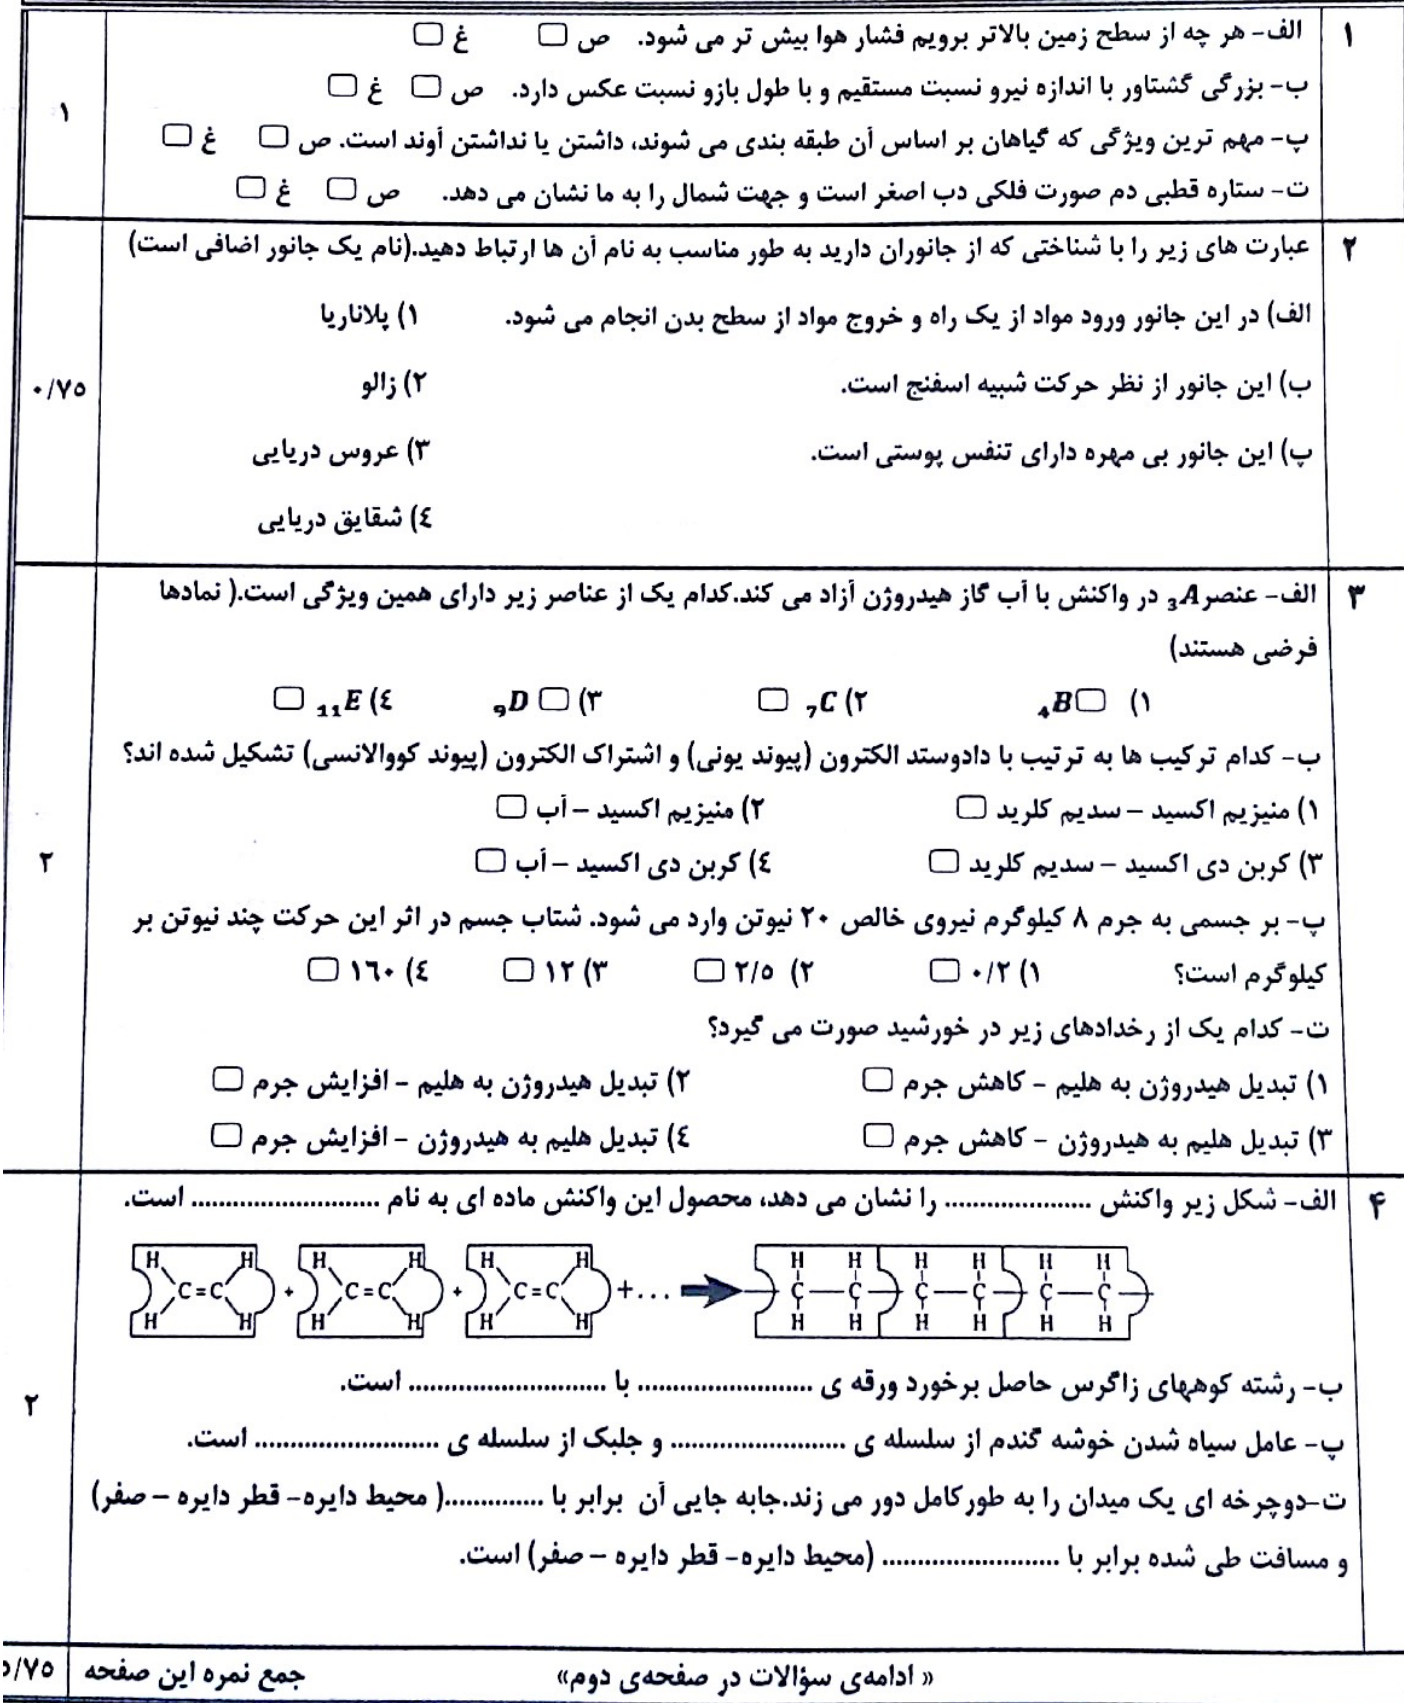 ۱
الف- هر چه از سطح زمین بالاتر برویم فشار هوا بیش تر می شود. ص □ غ □
ب- بزرگی گشتاور با اندازه نیرو نسبت مستقیم و با طول بازو نسبت عکس دارد. ص □ غ □
پ- مهم ترین ویژگی که گیاهان بر اساس آن طبقه بندی می شوند، داشتن یا نداشتن آوند است. ص □ غ □
ت- ستاره قطبی دم صورت فلکی دب اصغر است و جهت شمال را به ما نشان می دهد. ص □ غ □
۱
۲
عبارت های زیر را با شناختی که از جانوران دارید به طور مناسب به نام آن ها ارتباط دهید.(نام یک جانور اضافی است)
الف) در این جانور ورود مواد از یک راه و خروج مواد از سطح بدن انجام می شود. ۱) پلاناریا
ب) این جانور از نظر حرکت شبیه اسفنج است. ۲) زالو
پ) این جانور بی مهره دارای تنفس پوستی است. ۳) عروس دریایی
۴) شقایق دریایی
۰/۷۵
۳
الف- عنصر ₃A در واکنش با آب گاز هیدروژن آزاد می کند.کدام یک از عناصر زیر دارای همین ویژگی است.( نمادها
فرضی هستند)
۱) □ ₄B ۲) ₇C □ ۳) □ ₉D ۴) ₁₁E □
ب- کدام ترکیب ها به ترتیب با دادوستد الکترون (پیوند یونی) و اشتراک الکترون (پیوند کووالانسی) تشکیل شده اند؟
۱) منیزیم اکسید – سدیم کلرید □ ۲) منیزیم اکسید – آب □
۳) کربن دی اکسید – سدیم کلرید □ ۴) کربن دی اکسید – آب □
پ- بر جسمی به جرم ۸ کیلوگرم نیروی خالص ۲۰ نیوتن وارد می شود. شتاب جسم در اثر این حرکت چند نیوتن بر
کیلوگرم است؟ ۱) ۰/۲ □ ۲) ۲/۵ □ ۳) ۱۲ □ ۴) ۱۶۰ □
ت- کدام یک از رخدادهای زیر در خورشید صورت می گیرد؟
۱) تبدیل هیدروژن به هلیم – کاهش جرم □ ۲) تبدیل هیدروژن به هلیم – افزایش جرم □
۳) تبدیل هلیم به هیدروژن – کاهش جرم □ ۴) تبدیل هلیم به هیدروژن – افزایش جرم □
۲
۴
الف- شکل زیر واکنش ..................... را نشان می دهد، محصول این واکنش ماده ای به نام ........................... است.
H H H H H H H H H H H H
C=C + C=C + C=C +... C—C—C—C—C—C
H H H H H H H H H H H H
ب- رشته کوههای زاگرس حاصل برخورد ورقه ی ......................... با ............................ است.
پ- عامل سیاه شدن خوشه گندم از سلسله ی ......................... و جلبک از سلسله ی .......................... است.
ت-دوچرخه ای یک میدان را به طورکامل دور می زند.جابه جایی آن برابر با ..............( محیط دایره- قطر دایره – صفر)
و مسافت طی شده برابر با ......................... (محیط دایره- قطر دایره – صفر) است.
۲
« ادامه‌ی سؤالات در صفحه‌ی دوم»
جمع نمره این صفحه
۵/۷۵